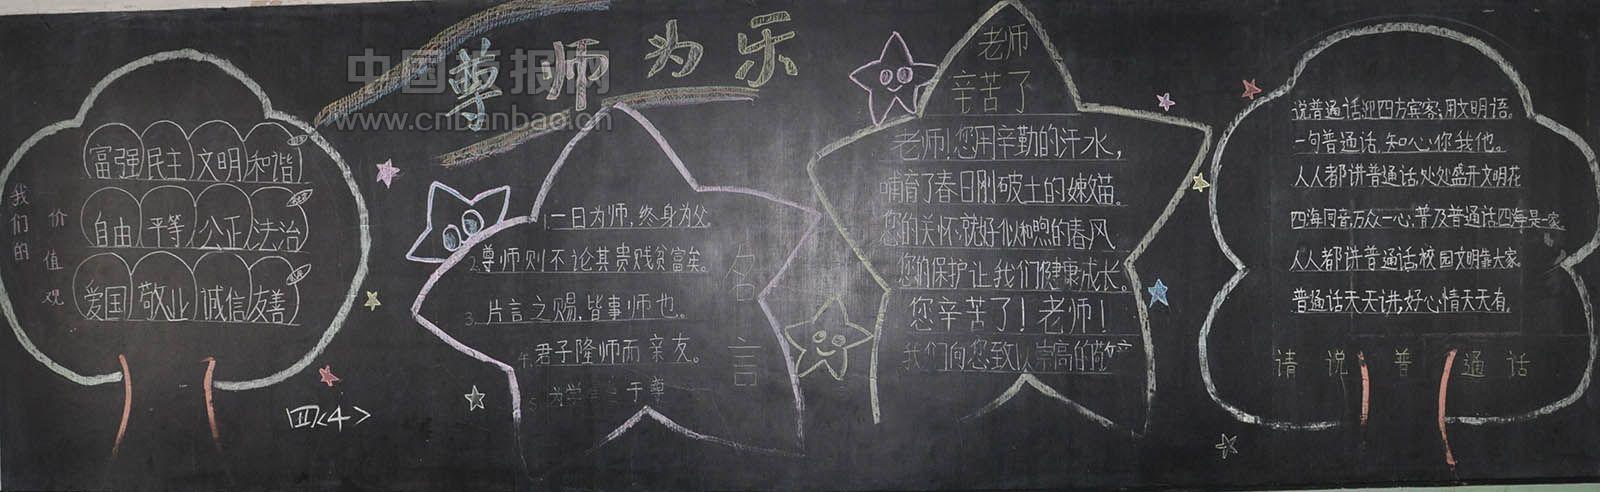 中国板报网
www.cnbanbao.cn
尊师为乐
我们的
价值观
富强 民主 文明 和谐
自由 平等 公正 法治
爱国 敬业 诚信 友善
四<4>
名言
1.一日为师,终身为父。
2.尊师则不论其贵贱贫富矣。
3.片言之赐,皆事师也。
4.君子隆师而亲友。
5.为学 于尊
老师
辛苦了
老师!您用辛勤的汗水,
哺育了春日刚破土的嫩苗。
您的关怀就好似和煦的春风
您的保护让我们健康成长。
您辛苦了!老师!
我们向您致以崇高的敬
说普通话迎四方宾客;用文明语。
一句普通话,知心你我他。
人人都讲普通话,处处盛开文明花
四海同音,万众一心,普及普通话四海是一家。
人人都讲普通话,校园文明靠大家。
普通话天天讲,好心情天天有。
请说普通话